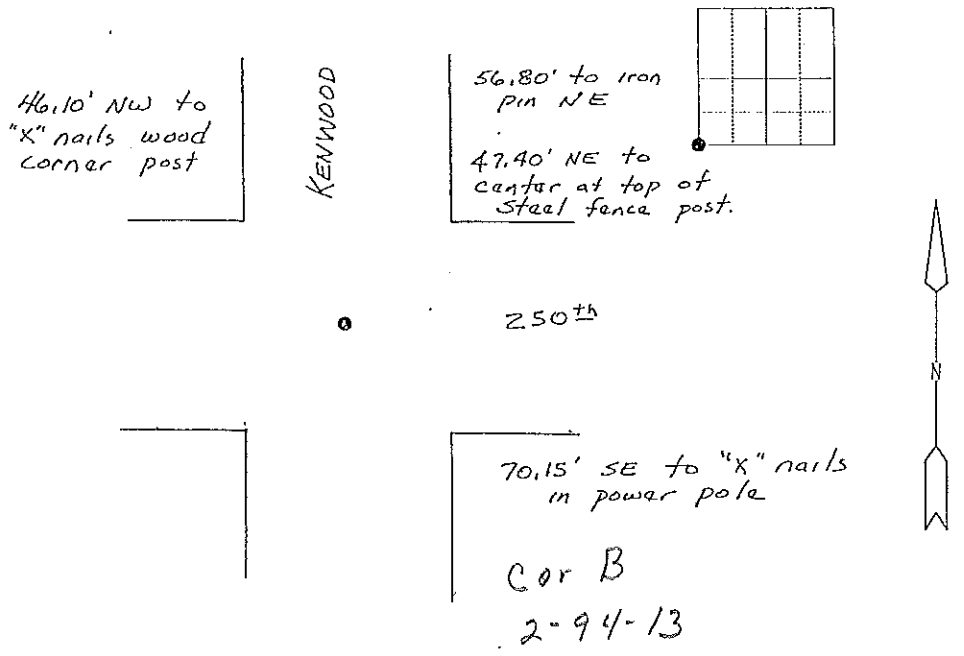 46.10' NW to
"X" nails wood
corner post
KENWOOD
56.80' to iron
pin NE
47.40' NE to
center at top of
steel fence post.
250th
N
70.15' SE to "X" nails
in power pole
Cor B
2-94-13